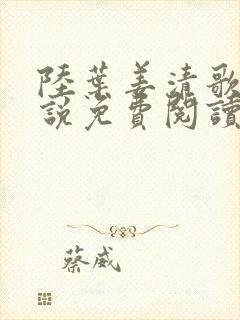 陸葉姜清歌
說免費閱讀
蔡威